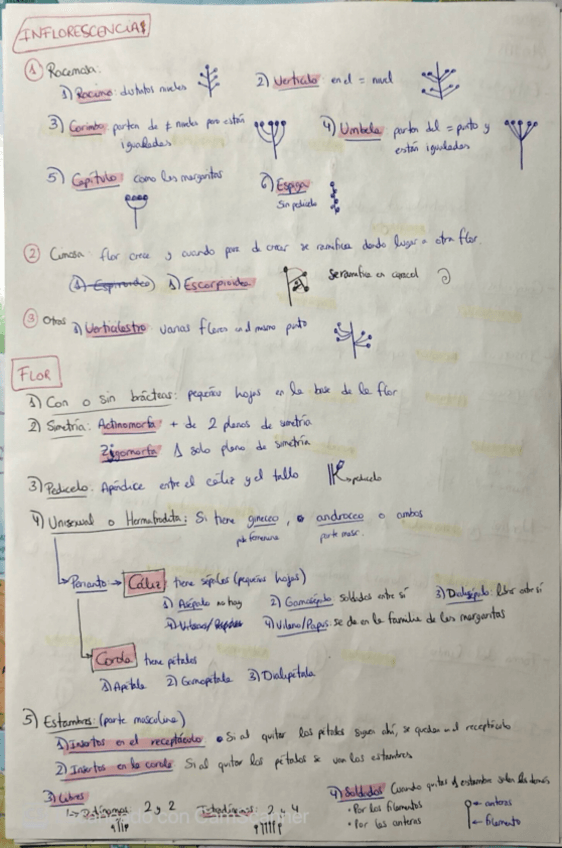 INFLORESCENCIAS
① Racemosa:
1) Racimo: distintos niveles
2) Verticilo: en el = nivel
3) Corimbo: parten de ≠ niveles pero están
igualadas
4) Umbela parten del = punto y
están igualadas
5) Capítulo como las margaritas
6) Espiga
Sin pedicelo
② Cimosa: flor crece y cuando para de crecer se ramifica dando lugar a otra flor.
1) Espiroidea) 1) Escorpioidea
Se ramifica en caracol
③ Otros 1) Verticilastro varias flores en el mismo punto
FLOR
1) Con o sin brácteas: pequeñas hojas en la base de la flor
2) Simetría: Actinomorfa + de 2 planos de simetría
Zigomorfa 1 solo plano de simetría
3) Pedicelo: Apéndice entre el cáliz y el tallo
pedicelo
4) Unisexual o Hermafrodita: Si tiene gineceo, o androceo o ambos
femenina
parte masc.
Perianto → Cáliz tiene sépalos (pequeñas hojas)
1) Asépalo no hay
2) Gamosépalo soldados entre sí
3) Dialisépalo: libres entre sí
4) Vilano/Papus: se da en la familia de las margaritas
Corola tiene pétalos
1) Apétala 2) Gamopétala 3) Dialipétala
5) Estambres: (parte masculina)
1) Insertos en el receptáculo • Si al quitar los pétalos siguen ahí, se quedan en el receptáculo
2) Insertos en la corola Si al quitar los pétalos se van los estambres
3) Libres
4) Soldados Cuando quitas 1 estambre salen los demás
Didínamos 2 y 2
Tetradínamos: 2 y 4
• Por los filamentos
• Por las anteras
← anteras
← filamento
con CamScanner